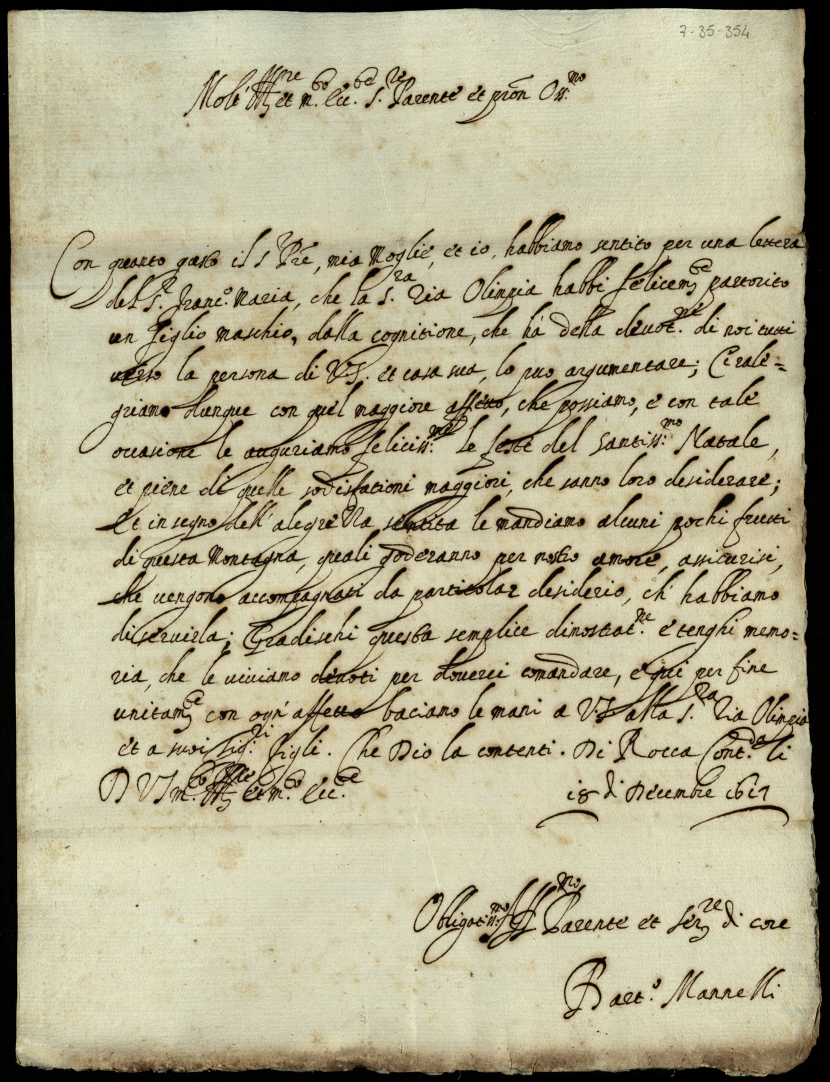 7-35-354
Molt' Ill.re et m.to Ecc.te S.re Parente et pron Oss.mo
Con quanto gusto il S.r Pre, mia Moglie, et io, habbiamo sentito per una lettera
del S.r Franc.o Maria, che la S.ra Zia Olimpia habbi felicem.te partorito
un figlio maschio, dalla cognitione, che hà della devot.ne di noi tutti
verso la persona di V.S. et casa sua, lo può argumentare; Ci rale=
griamo dunque con quel maggiore affetto, che possiamo, e con tale
occasione le auguriamo feliciss.me le feste del Santiss.mo Natale,
et piene di quelle sodisfationi maggiori, che sanno loro desiderare;
Et in segno dell'alegrezza sentita le mandiamo alcuni pochi frutti
di questa Montagna, quali goderanno per nostro amore, assicurisi,
che vengono accompagnati da particolar desiderio, ch'habbiamo
di servirla; Gradischi questa semplice dimostrat.ne e tenghi memo=
ria, che le viviamo devoti per doverci comandare, e qui per fine
unitam.te con ogn'affetto baciamo le mani a V.S. alla S.ra Zia Olimpia
et a suoi Sig.ri figli. Che Dio la contenti. Di Rocca Cont.da li
D V S m.to Ill.re et m.to Ecc.te 18 di Decembre 1617
Obligatiss.mo Aff.mo Parente et ser.re di core
Bart.o Mannelli